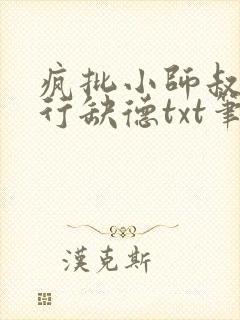 疯批小师叔
行缺德txt笔
漢克斯